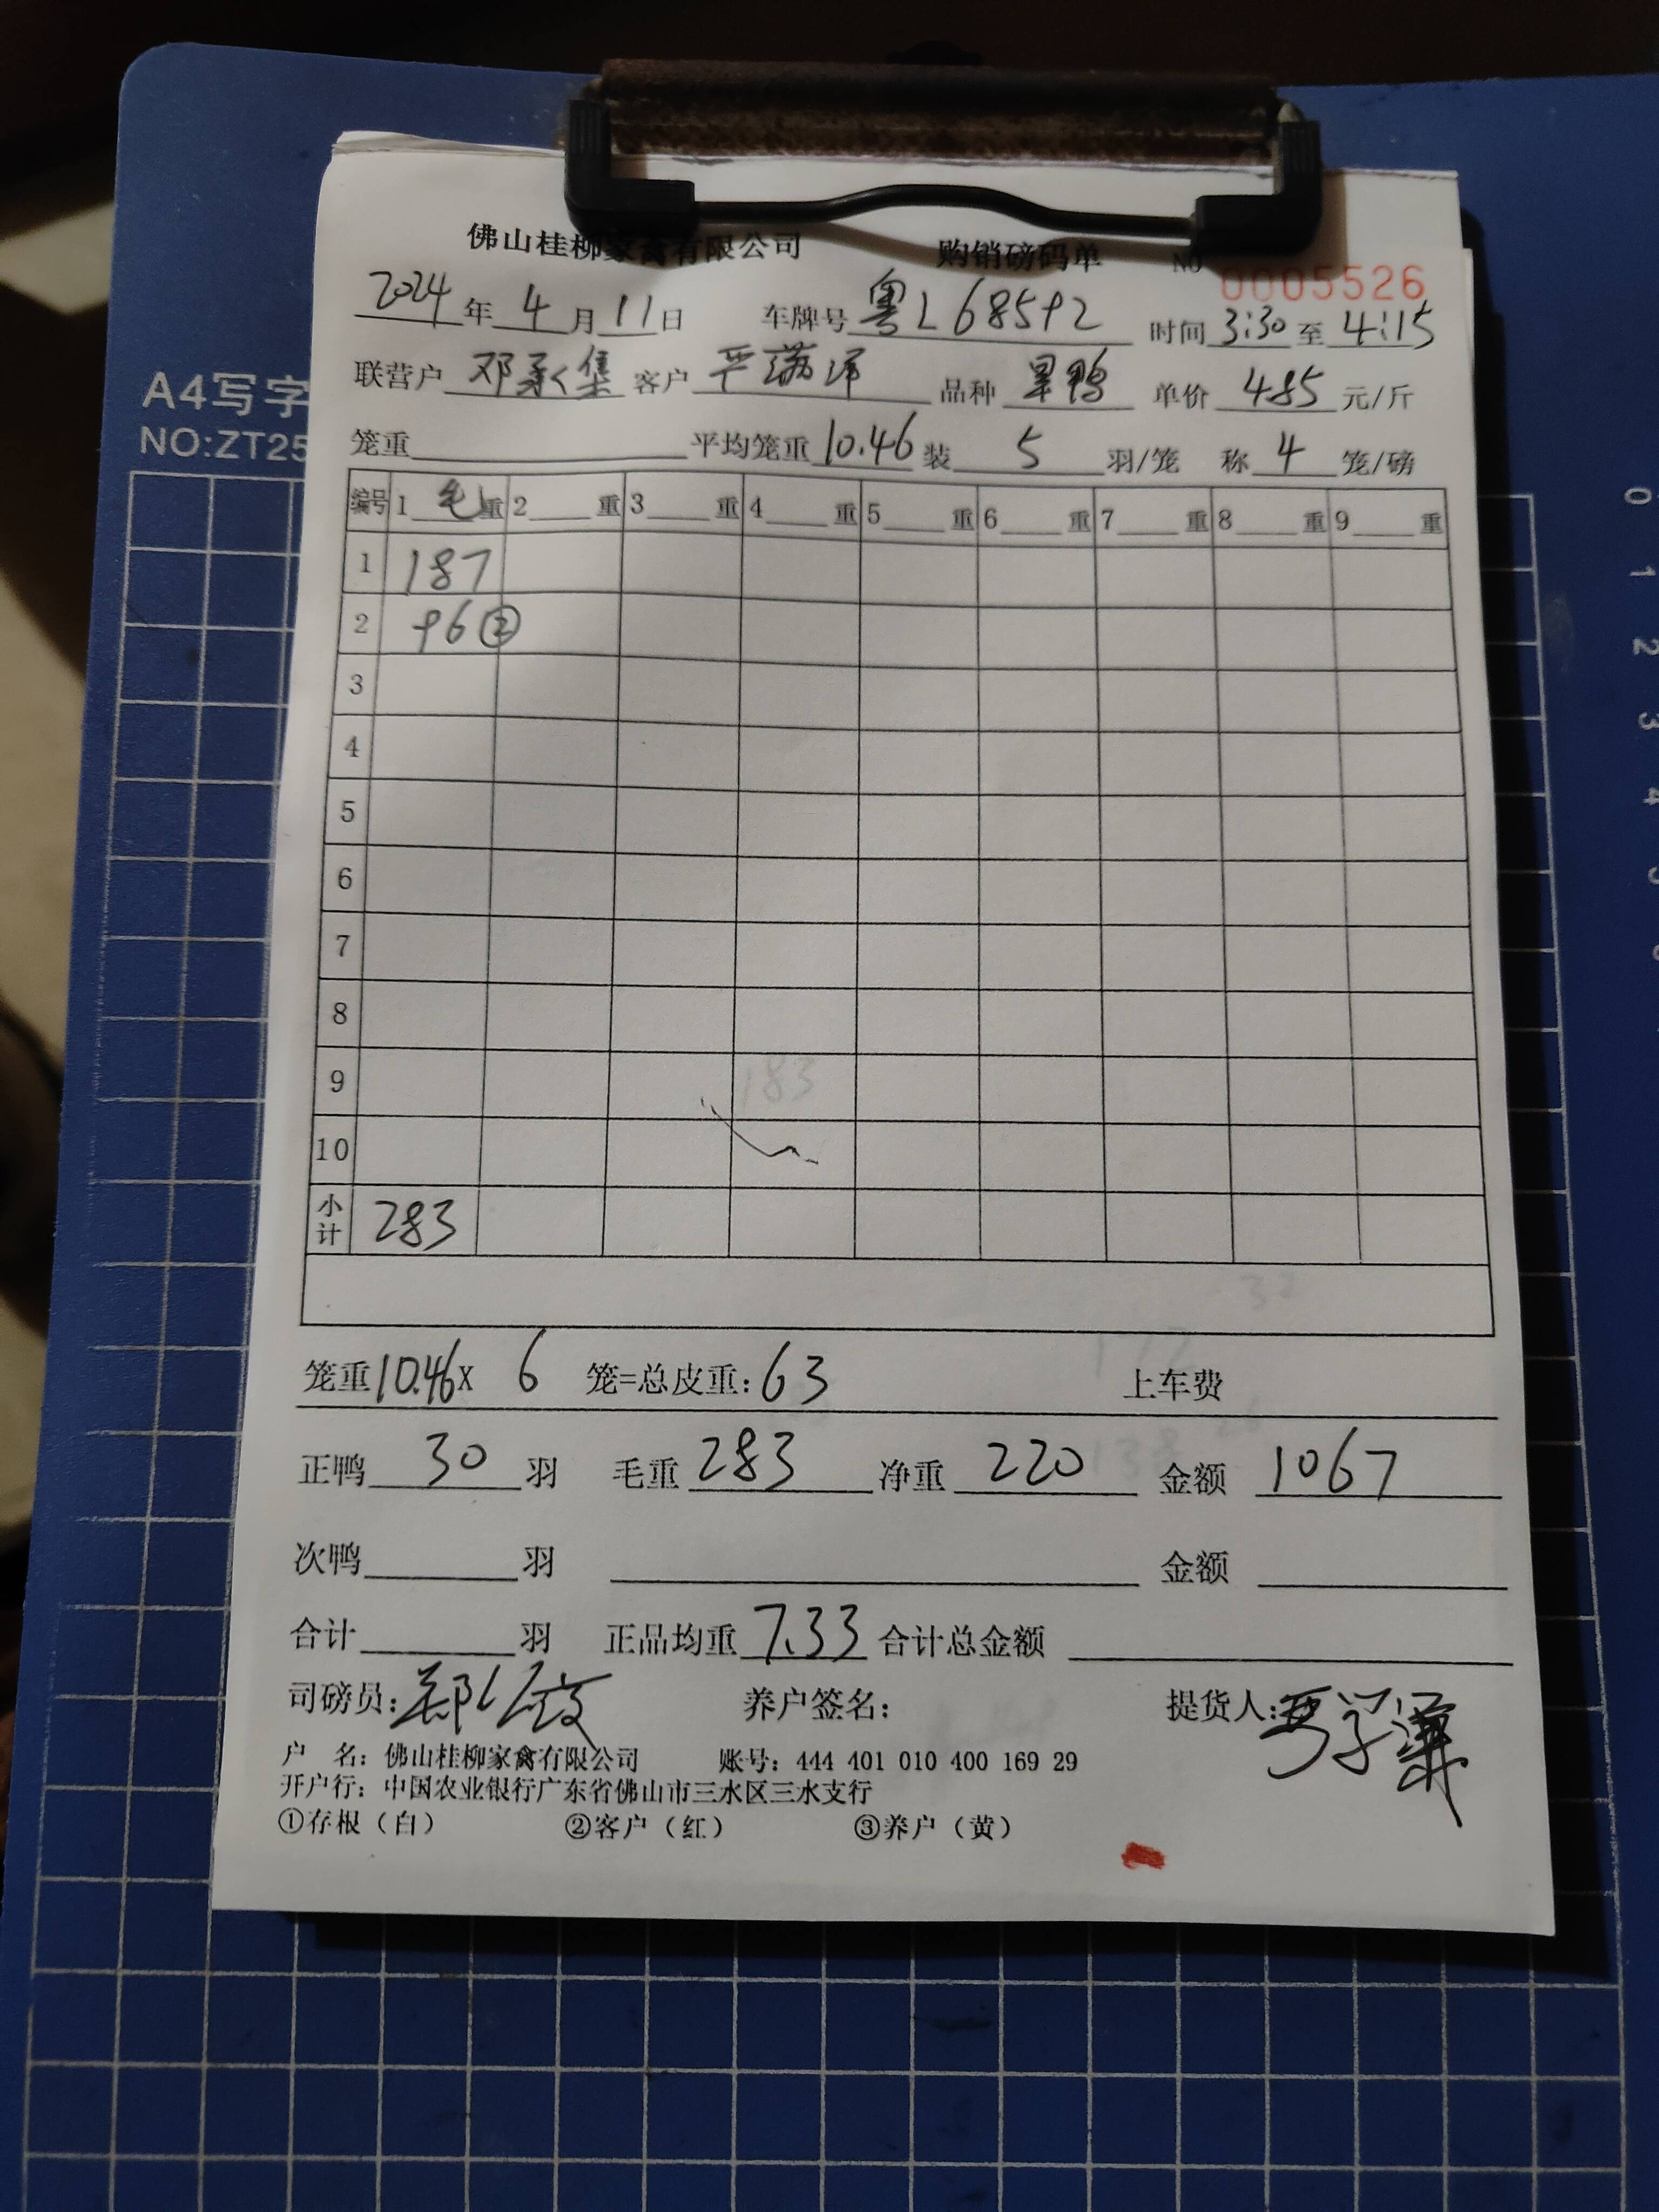 佛山桂柳家禽有限公司 购销磅码单 NO 0005526
2024年4月11日 车牌号 粤L68592 时间 3:30 至 4:15
A4写字
联营户 邓承集 客户 严满洋 品种 单价 485 元/斤
NO:ZT25
笼重 平均笼重 10.46 装 5 羽/笼 称 4 笼/磅
编号 1 毛重 2 重 3 重 4 重 5 重 6 重 7 重 8 重 9 重
1 187
2 96②
3
4
5
6
7
8
9 183
10
小计 283
笼重10.46X 6 笼=总皮重:63 上车费
正鸭 30 羽 毛重 283 净重 220 金额 1067
次鸭 羽 金额
合计 羽 正品均重 7.33 合计总金额
司磅员: 养户签名: 提货人:
户 名: 佛山桂柳家禽有限公司 账号: 444 401 010 400 169 29
开户行: 中国农业银行广东省佛山市三水区三水支行
①存根（白） ②客户（红） ③养户（黄）
0
1
2
3
4
5
6